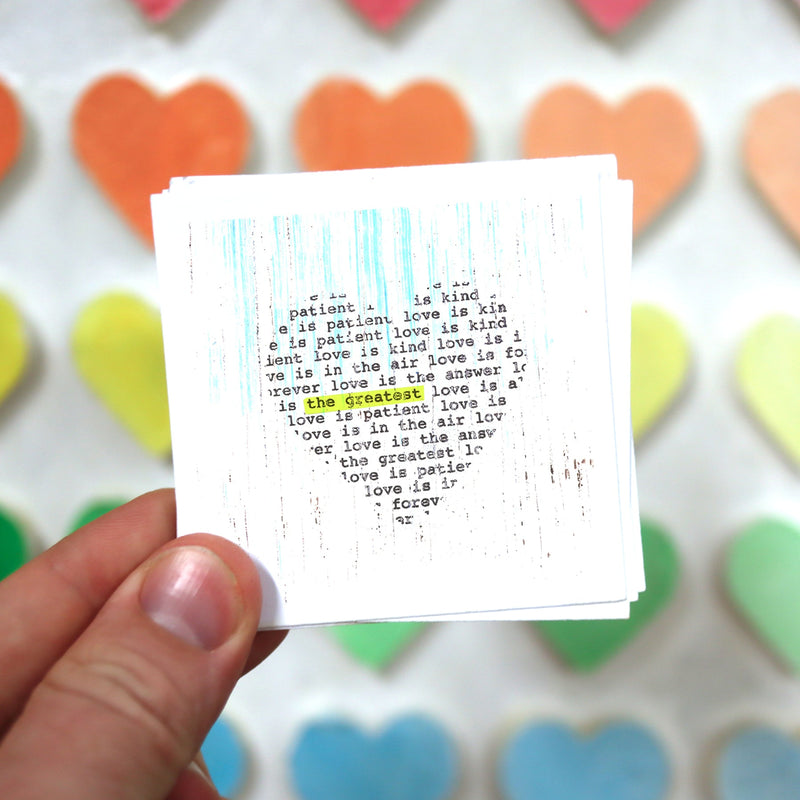 patient is kind
e is patient love is kin
e is patient love is kind
ient love is kind love is i
ve is in the air love is fo
rever love is the answer lo
is the greatest love is al
love is patient love is
love is in the air lov
ver love is the answ
the greatest lo
love is patien
love is in
forev
er